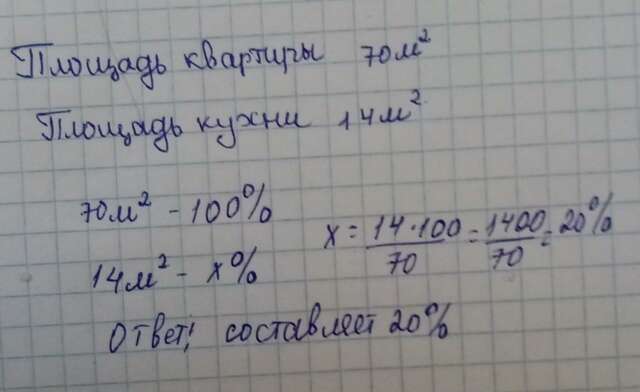 Площадь квартиры 70м²
Площадь кухни 14м²
70м² - 100%
14м² - х%
х = 14·100/70 = 1400/70 = 20%
Ответ: составляет 20%